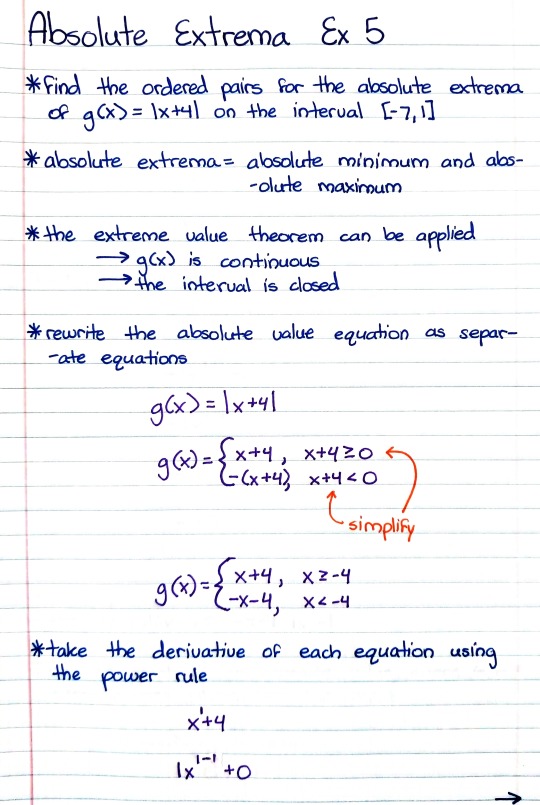 Absolute Extrema Ex 5
*find the ordered pairs for the absolute extrema
of g(x) = |x+4| on the interval [-7,1]
*absolute extrema = absolute minimum and abs-
-olute maximum
*the extreme value theorem can be applied
→ g(x) is continuous
→ the interval is closed
*rewrite the absolute value equation as separ-
-ate equations
g(x) = |x+4|
g(x) = { x+4 , x+4 ≥ 0
-(x+4), x+4 < 0
simplify
g(x) = { x+4 , x ≥ -4
-x-4, x < -4
*take the derivative of each equation using
the power rule
x¹+4
1x¹⁻¹ +0
→